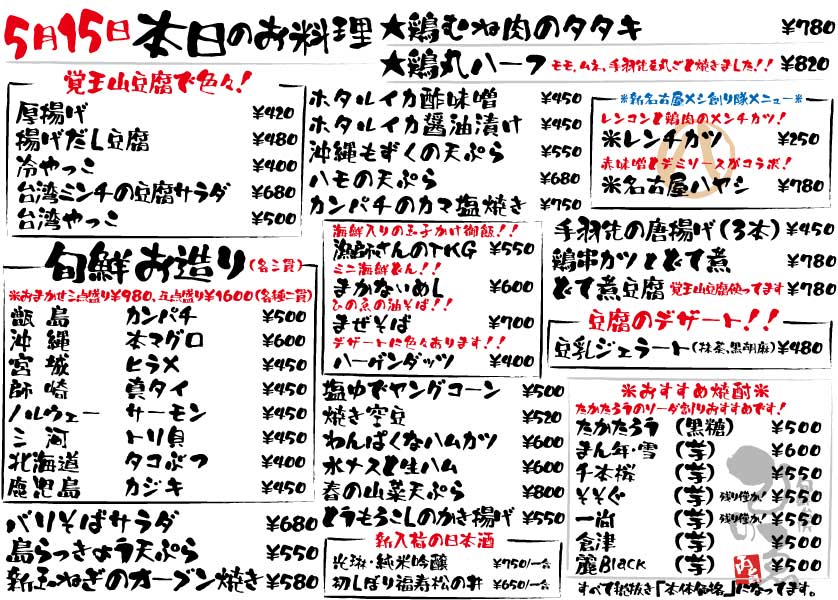 5月15日 本日のお料理
★鶏むね肉のタタキ ¥780
★鶏丸ハーフ モモ、ムネ、手羽先を丸ごと焼きました!! ¥820
覚王山豆腐で色々!
厚揚げ ¥420
揚げだし豆腐 ¥480
冷やっこ ¥400
台湾ミンチの豆腐サラダ ¥680
台湾やっこ ¥500
旬鮮お造り(各三貫)
※おまかせ三点盛り¥980、五点盛り¥1600(各種二貫)
甑島 カンパチ ¥500
沖縄 本マグロ ¥600
宮城 ヒラメ ¥450
師崎 真タイ ¥450
ノルウェー サーモン ¥450
三河 トリ貝 ¥450
北海道 タコぶつ ¥400
鹿児島 カジキ ¥450
バリそばサラダ ¥680
島らっきょう天ぷら ¥550
新玉ねぎのオーブン焼き ¥580
ホタルイカ酢味噌 ¥450
ホタルイカ醤油漬け ¥450
沖縄もずくの天ぷら ¥550
ハモの天ぷら ¥680
カンパチのカマ塩焼き ¥750
海鮮入りの玉子かけ御飯!!
漁師さんのTKG ¥550
ミニ海鮮どん!!
まかないめし ¥600
ひの気の油そば!!
まぜそば ¥700
デザートに色々あります!!
ハーゲンダッツ ¥400
塩ゆでヤングコーン ¥500
焼き空豆 ¥520
わんぱくなハムカツ ¥600
水ナスと生ハム ¥600
春の山菜天ぷら ¥800
とうもろこしのかき揚げ ¥550
新入荷の日本酒
光琳・純米吟醸 ¥750/一合
初しぼり福寿松の井 ¥650/一合
※新名古屋メシ創り隊メニュー※
レンコンと鶏肉のメンチカツ!
※レンチカツ ¥250
赤味噌とデミソースがコラボ!
※名古屋ハヤシ ¥780
手羽先の唐揚げ(3本) ¥450
鶏串カツとどて煮 ¥780
どて煮豆腐 覚王山豆腐使ってます ¥780
豆腐のデザート!!
豆乳ジェラート(抹茶、黒胡麻) ¥480
※おすすめ焼酎※
たかたろうのソーダ割りおすすめです!
たかたろう (黒糖) ¥500
まん年・雪 (芋) ¥600
千本桜 (芋) ¥550
そそぐ (芋) 残り僅か! ¥550
一尚 (芋) 残り僅か! ¥550
倉津 (芋) ¥500
麗Black (芋) ¥500
すべて税抜き「本体価格」になってます。